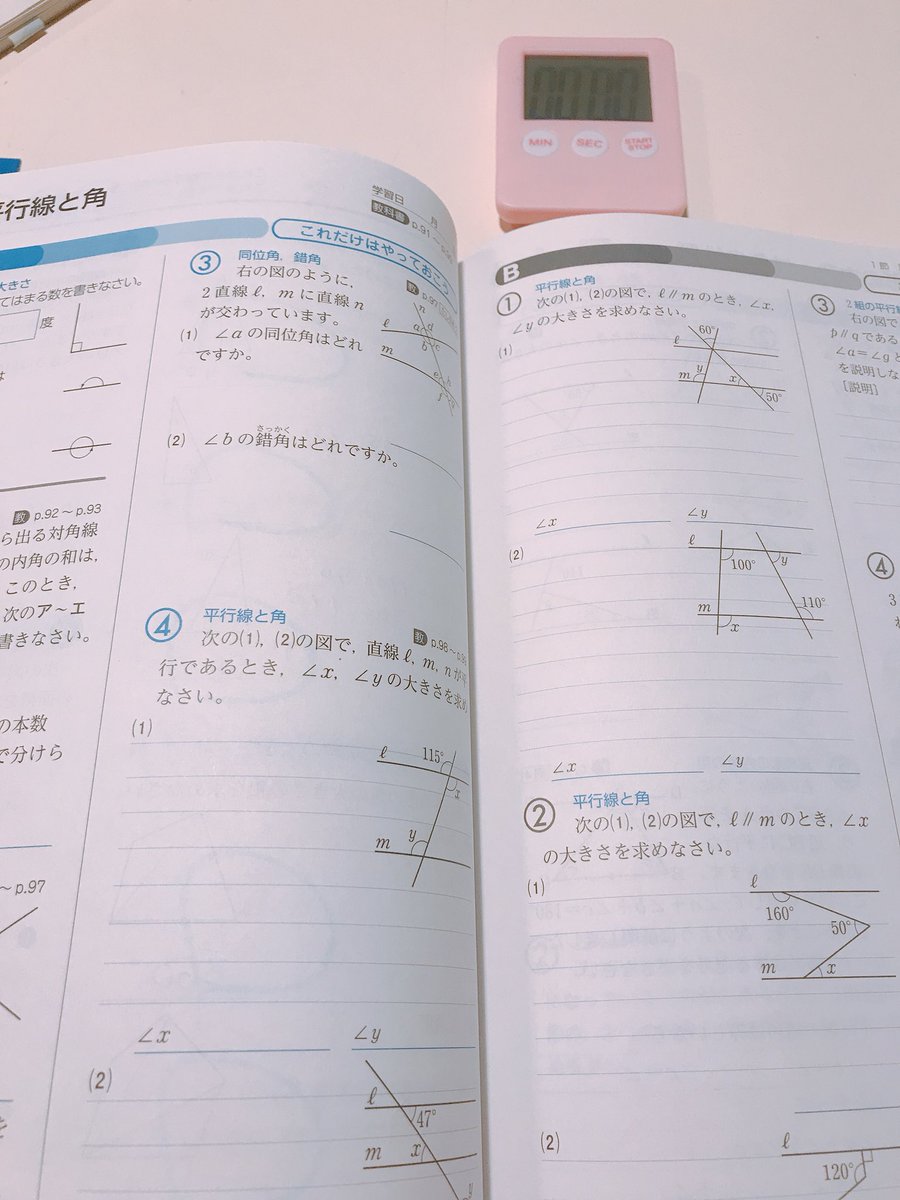 MIN SEC START STOP
平行線と角
学習日 月
教科書 p.91~
これだけはやっておこう
大きさ
てはまる数を書きなさい。
度
教 p.92~p.93
ら出る対角線
の内角の和は,
このとき,
次のア~エ
書きなさい。
の本数
で分けら
~p.97
3 同位角,錯角
右の図のように,
2直線ℓ, mに直線n
が交わっています。
(1) ∠aの同位角はどれ
ですか。
n
ℓ a d
b c
m
e h
f g
さっかく
(2) ∠bの錯角はどれですか。
4 平行線と角
教 p.98~
次の(1), (2)の図で, 直線ℓ, m, nが平
行であるとき, ∠x, ∠yの大きさを求め
なさい。
(1)
ℓ 115°
x
y
m
∠x ∠y
(2)
ℓ
47°
m x
y
B
1節
1 平行線と角
次の(1), (2)の図で, ℓ∥mのとき, ∠x,
∠yの大きさを求めなさい。
(1)
60°
ℓ
m y x
50°
∠x ∠y
(2)
ℓ
100° y
m 110°
x
∠x ∠y
2 平行線と角
次の(1), (2)の図で, ℓ∥mのとき, ∠x
の大きさを求めなさい。
(1)
ℓ
160°
50°
m x
(2)
ℓ
120°
3 2組の平行線
右の図で
p∥qである
∠a=∠gと
を説明しな
[説明]
4
3